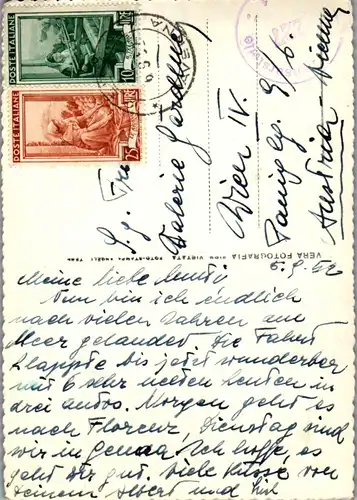 POSTE ITALIANE
LIRE 10
POSTE ITALIANE
LIRE 25
S. g. Frau
Valerie
Wien IV.
9/6.
Austria - Vienna
VERA FOTOGRAFIA
5.9.52
Meine liebe Mutti,
Nun bin ich endlich
nach vielen Jahren am
Meer gelandet. Die Fahrt
klappte bis jetzt wunderbar
mit 6 sehr netten Leuten in
drei Autos. Morgen geht es
nach Florenz, Dienstag sind
wir in Genua. Ich hoffe, es
geht Dir gut. Viele Küsse von
Deinem Albert und